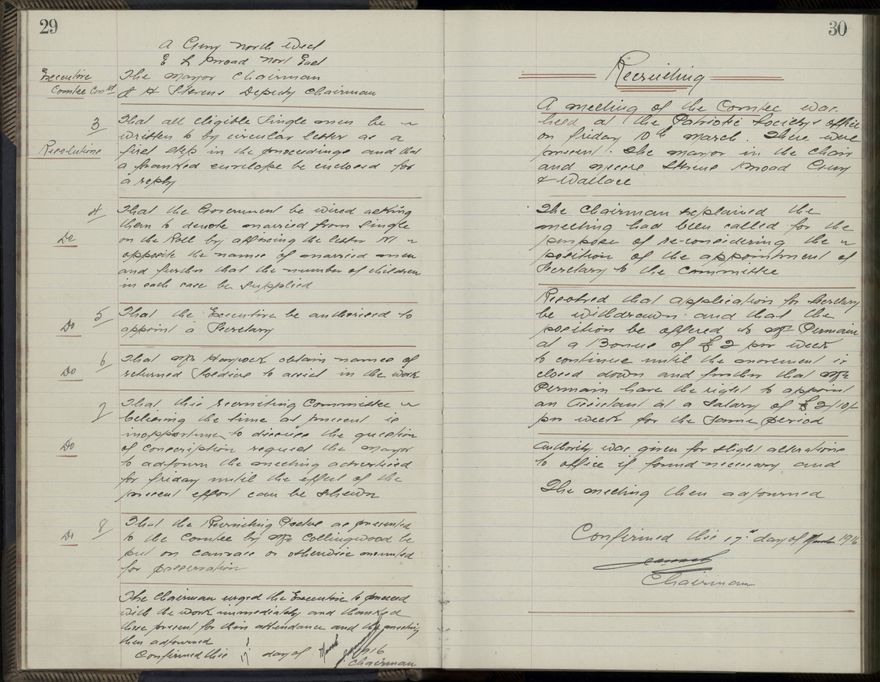 29
A Cuny North West
E L Broad Nort East
Executive
Comtee Con
The Mayor Chairman
A H Skerus Deputy Chairman
3
Resolution
That all eligible Single men be
written to by circular letter as a
first step in the proceedings and that
a franked envelope be enclosed for
a reply
4
Do
That the Government be wired asking
them to denote married from Single
on the Roll by affixing the letter M
opposite the names of married men
and further that the number of children
in each case be supplied
5
Do
That the Executive be authorised to
appoint a Secretary
6
Do
That Mr obtain names of
returned Soldiers to assist in the work
7
Do
That this Recruiting Committee
believing the time at present is
inopportune to discuss the question
of conscription request the Mayor
to adjourn the meeting advertised
for Friday until the effect of the
present effort can be shewn
8
Do
That the Recruiting as presented
to the Comtee by Mr Collingwood be
put on canvass or otherwise mounted
for preservation
The Chairman urged the Executive to proceed
with the work immediately and thanked
those present for their attendance and the meeting
then adjourned
Confirmed this 17 day of March 1916
Chairman
30
Recruiting
A meeting of the Comtee was
held at the Patriotic Society's office
on Friday 10th March. There were
present. The Mayor in the Chair
and Messrs Broad Cuny
& Wallace
The Chairman explained the
meeting had been called for the
purpose of re-considering the
position of the appointment of
Secretary to the Committee
Resolved that application for Secretary
be withdrawn and that the
position be offered to Mr Permain
at a Bonus of £2 per week
to continue until the movement is
closed down and further that Mr
Permain have the right to appoint
an Assistant at a Salary of £2/10/-
per week for the same period
Authority was given for slight alterations
to office if found necessary and
The meeting then adjourned
Confirmed this 17th day of March 1916
Chairman